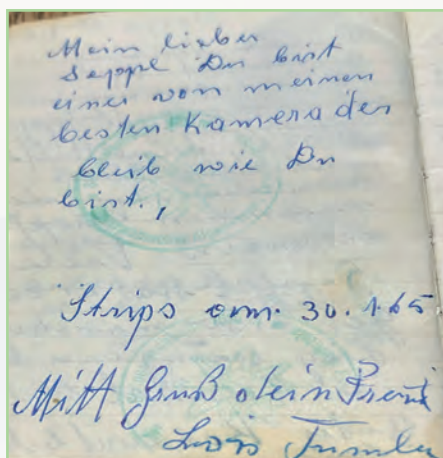 Mein lieber
Seppl Du bist
einer von meinen
besten Kameraden
bleib wie Du
bist.,
Strips am. 30.1.65
Mitt Gruß dein
Luis